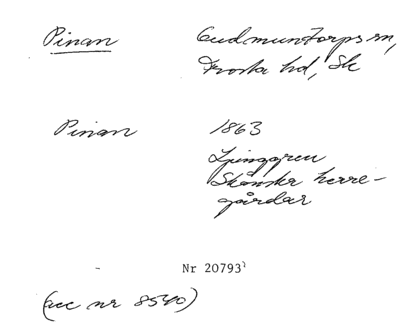 Pinan Gudmuntorps sn,
Frosta hd, Sk
Pinan 1863
Ljunggren
Skånska herre-
gårdar
- Nr 20793
(acc nr 8540)